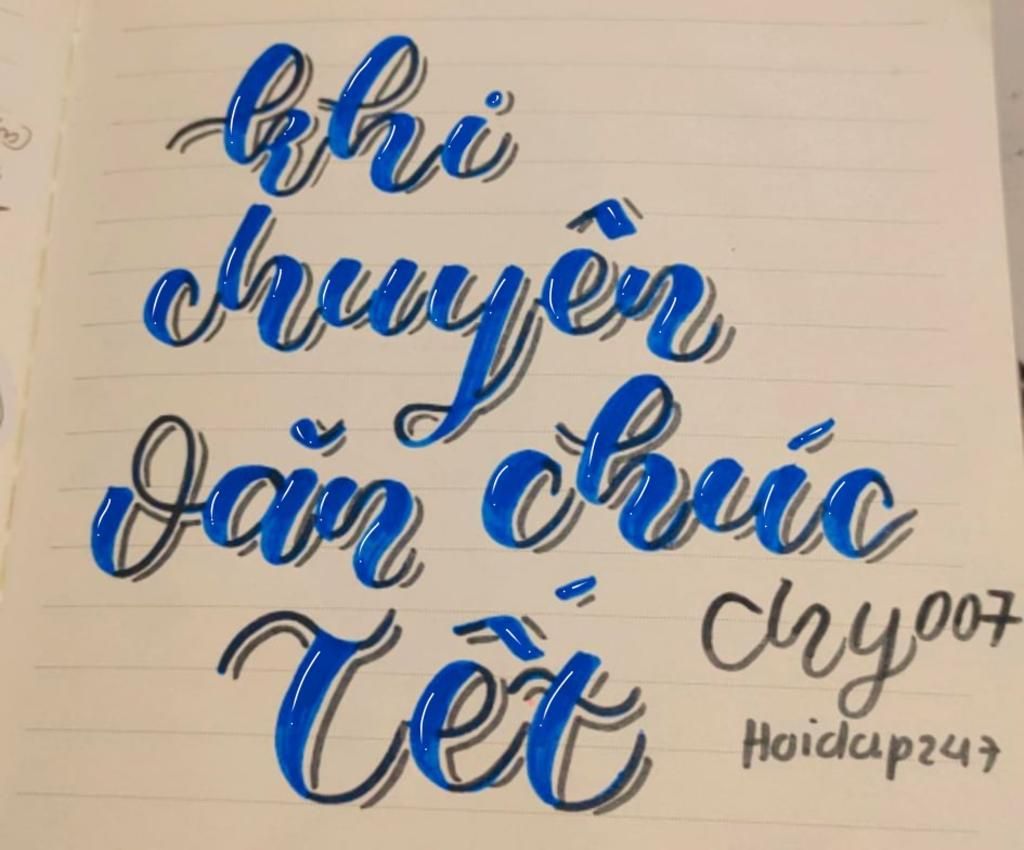 khi
chuyên
văn chúc
Tết
chy007
Hoidap247